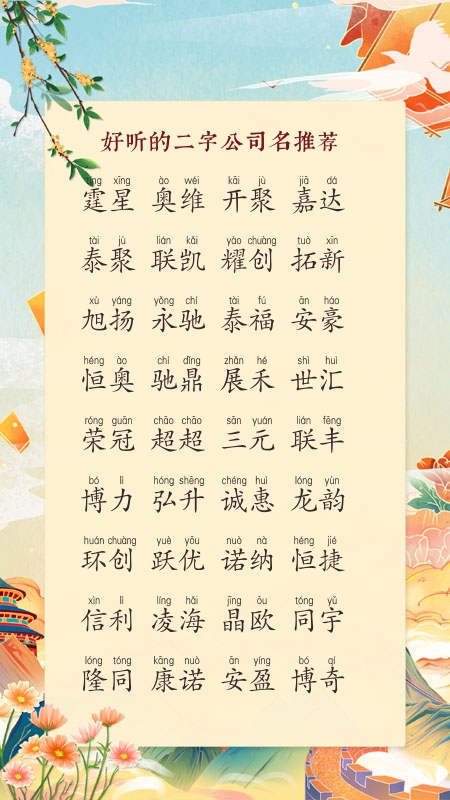 好听的二字公司名推荐
tíng xīng ào wéi kāi jù jiā dá
霆星 奥维 开聚 嘉达
tài jù lián kǎi yào chuàng tuò xīn
泰聚 联凯 耀创 拓新
xù yáng yǒng chí tài fú ān háo
旭扬 永驰 泰福 安豪
héng ào chí dǐng zhǎn hé shì huì
恒奥 驰鼎 展禾 世汇
róng guān chāo chāo sān yuán lián fēng
荣冠 超超 三元 联丰
bó lì hóng shēng chéng huì lóng yùn
博力 弘升 诚惠 龙韵
huán chuàng yuè yōu nuò nà héng jié
环创 跃优 诺纳 恒捷
xìn lì líng hǎi jīng ōu tóng yǔ
信利 凌海 晶欧 同宇
lóng tóng kāng nuò ān yíng bó qí
隆同 康诺 安盈 博奇